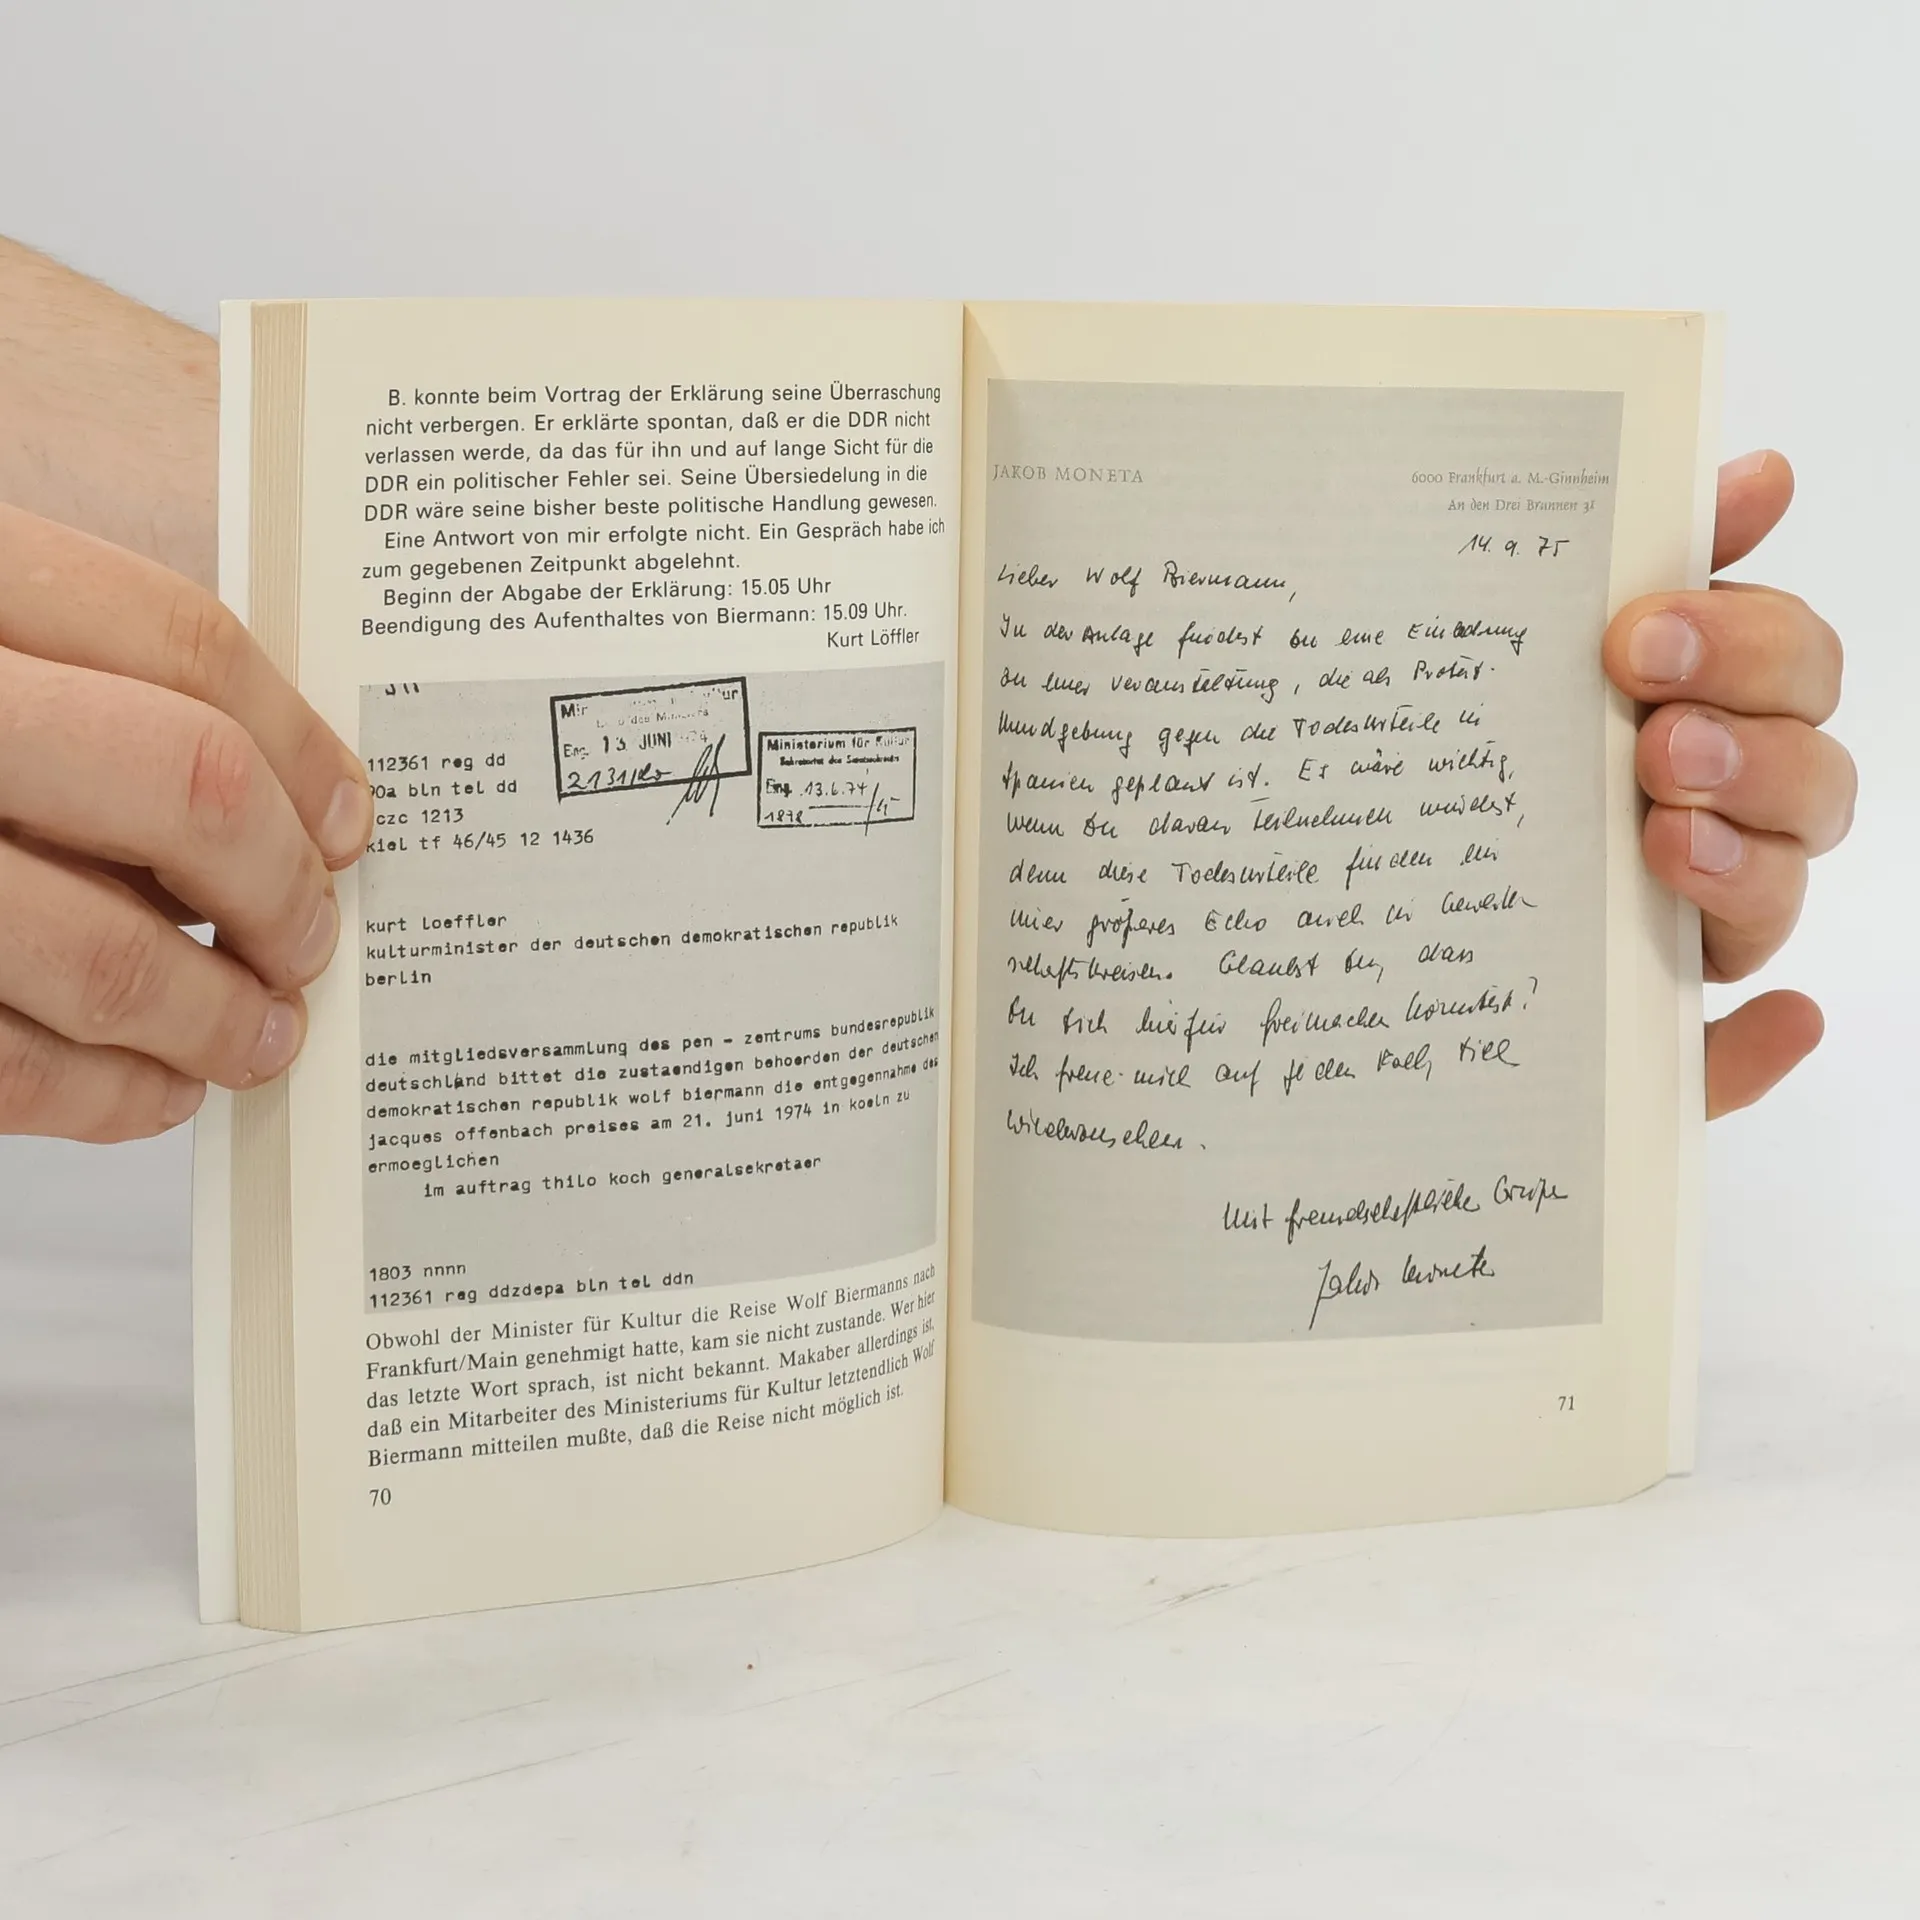 B. konnte beim Vortrag der Erklärung seine Überraschung
nicht verbergen. Er erklärte spontan, daß er die DDR nicht
verlassen werde, da das für ihn und auf lange Sicht für die
DDR ein politischer Fehler sei. Seine Übersiedelung in die
DDR wäre seine bisher beste politische Handlung gewesen.
Eine Antwort von mir erfolgte nicht. Ein Gespräch habe ich
zum gegebenen Zeitpunkt abgelehnt.
Beginn der Abgabe der Erklärung: 15.05 Uhr
Beendigung des Aufenthaltes von Biermann: 15.09 Uhr.
Kurt Löffler
Eing. 13. JUNI
Ministerium für Kultur
Eing. 13.6.74
1878
112361 reg dd
90a bln tel dd
czc 1213
kiel tf 46/45 12 1436
kurt loeffler
kulturminister der deutschen demokratischen republik
berlin
die mitgliedsversammlung des pen - zentrums bundesrepublik
deutschland bittet die zustaendigen behoerden der deutschen
demokratischen republik wolf biermann die entgegennahme des
jacques offenbach preises am 21. juni 1974 in koeln zu
ermoeglichen
im auftrag thilo koch generalsekretaer
1803 nnnn
112361 reg ddzdepa bln tel ddn
Obwohl der Minister für Kultur die Reise Wolf Biermanns nach
Frankfurt/Main genehmigt hatte, kam sie nicht zustande. Wer hier
das letzte Wort sprach, ist nicht bekannt. Makaber allerdings ist,
daß ein Mitarbeiter des Ministeriums für Kultur letztendlich Wolf
Biermann mitteilen mußte, daß die Reise nicht möglich ist.
70
JAKOB MONETA
6000 Frankfurt a. M.-Ginnheim
An den Drei Brunnen 31
14. 9. 75
Lieber Wolf Biermann,
In der Anlage findest Du eine Einladung
zu einer Veranstaltung, die als Protest-
kundgebung gegen die Todesurteile in
Spanien geplant ist. Es wäre wichtig,
wenn Du daran teilnehmen würdest,
denn diese Todesurteile finden ein
immer größeres Echo auch in Gewerk-
schaftskreisen. Glaubst Du, dass
Du Dich hierfür freimachen könntest?
Ich freue mich auf jeden Fall, Dich
wiederzusehen.
Mit freundschaftlichen Grüßen
Jakob Moneta
71